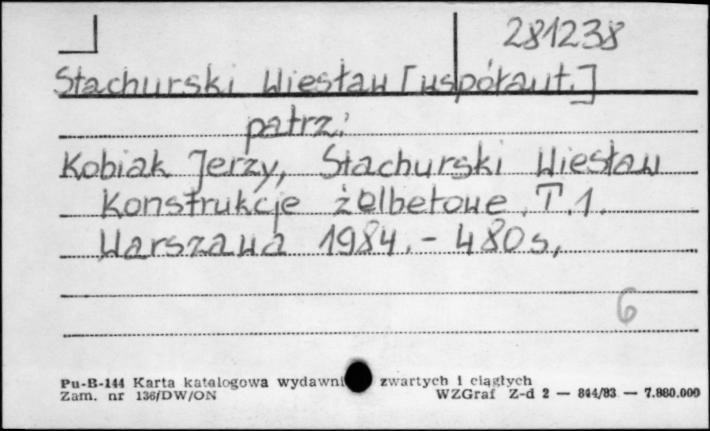 281238
Stachurski Wiesław [współaut.]
patrz:
Kobiak Jerzy, Stachurski Wiesław
Konstrukcje żelbetowe. T.1.
Warszawa 1984. - 480 s,
6
Pu-B-144 Karta katalogowa wydawni zwartych i ciągłych
Zam. nr 136/DW/ON WZGraf Z-d 2 — 844/83 — 7.880.000